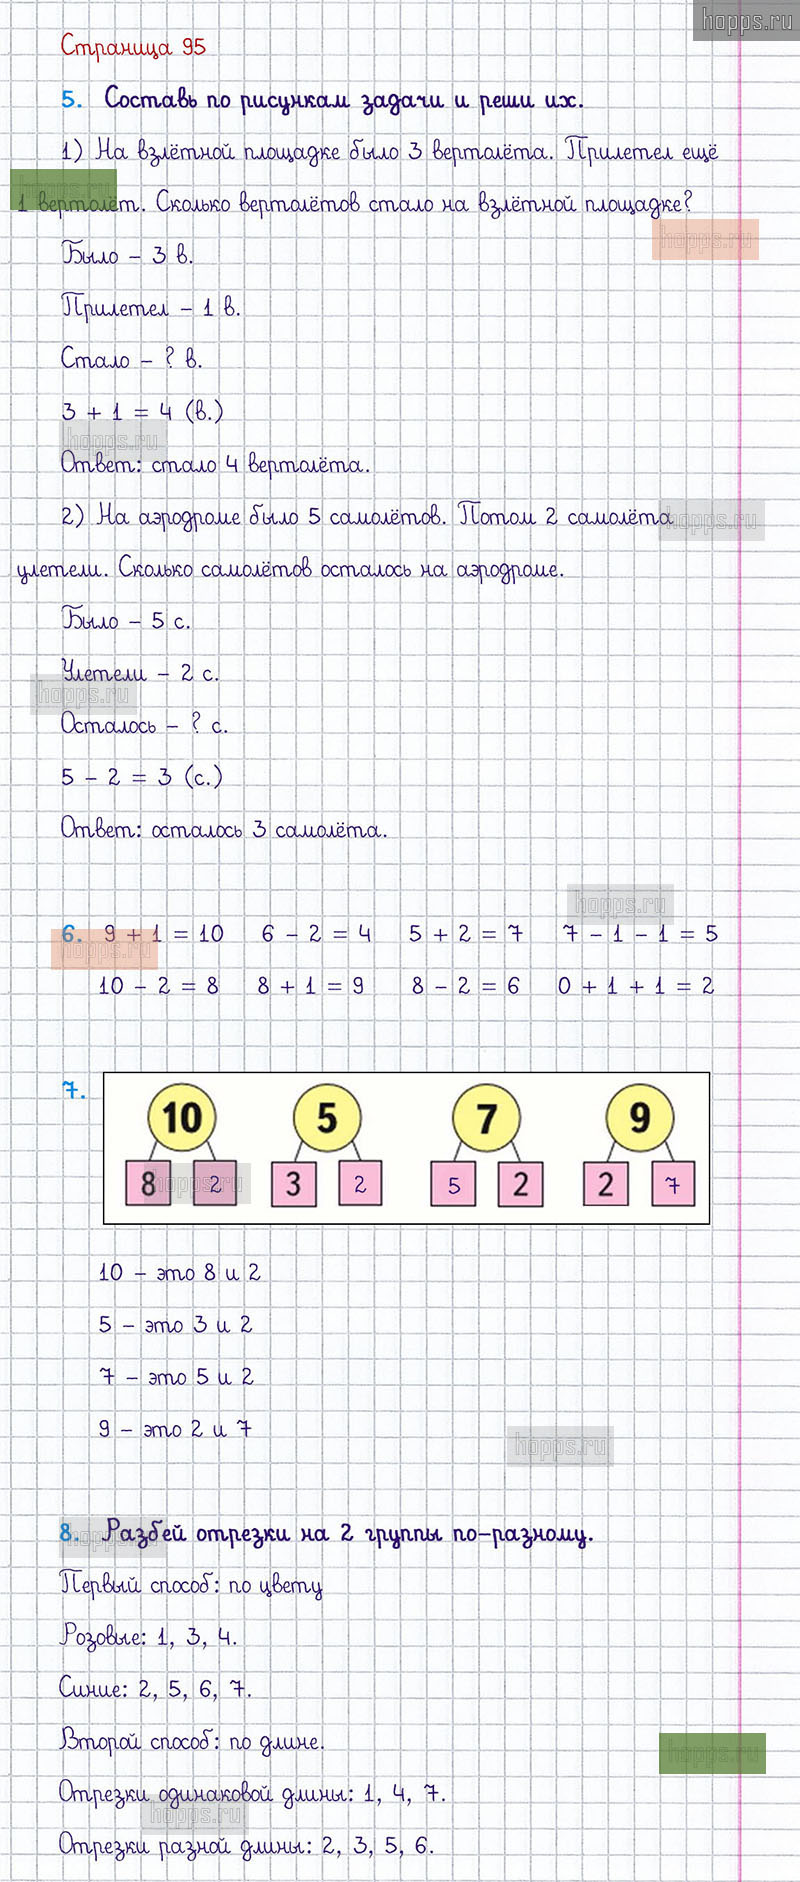 hopps.ru
Страница 95
5. Составь по рисункам задачи и реши их.
1) На взлётной площадке было 3 вертолёта. Прилетел ещё
hopps.ru
1 вертолёт. Сколько вертолётов стало на взлётной площадке?
hopps.ru
Было – 3 в.
Прилетел – 1 в.
Стало – ? в.
3 + 1 = 4 (в.)
hopps.ru
Ответ: стало 4 вертолёта.
2) На аэродроме было 5 самолётов. Потом 2 самолёта
hopps.ru
улетели. Сколько самолётов осталось на аэродроме.
Было – 5 с.
Улетели – 2 с.
hopps.ru
Осталось – ? с.
5 – 2 = 3 (с.)
Ответ: осталось 3 самолёта.
hopps.ru
6. 9 + 1 = 10 6 – 2 = 4 5 + 2 = 7 7 – 1 – 1 = 5
hopps.ru
10 – 2 = 8 8 + 1 = 9 8 – 2 = 6 0 + 1 + 1 = 2
7.
10 5 7 9
8 2 3 2 5 2 2 7
hopps.ru
10 – это 8 и 2
5 – это 3 и 2
7 – это 5 и 2
9 – это 2 и 7
hopps.ru
8. Разбей отрезки на 2 группы по-разному.
hopps.ru
Первый способ: по цвету
Розовые: 1, 3, 4.
Синие: 2, 5, 6, 7.
Второй способ: по длине.
hopps.ru
Отрезки одинаковой длины: 1, 4, 7.
hopps.ru
Отрезки разной длины: 2, 3, 5, 6.